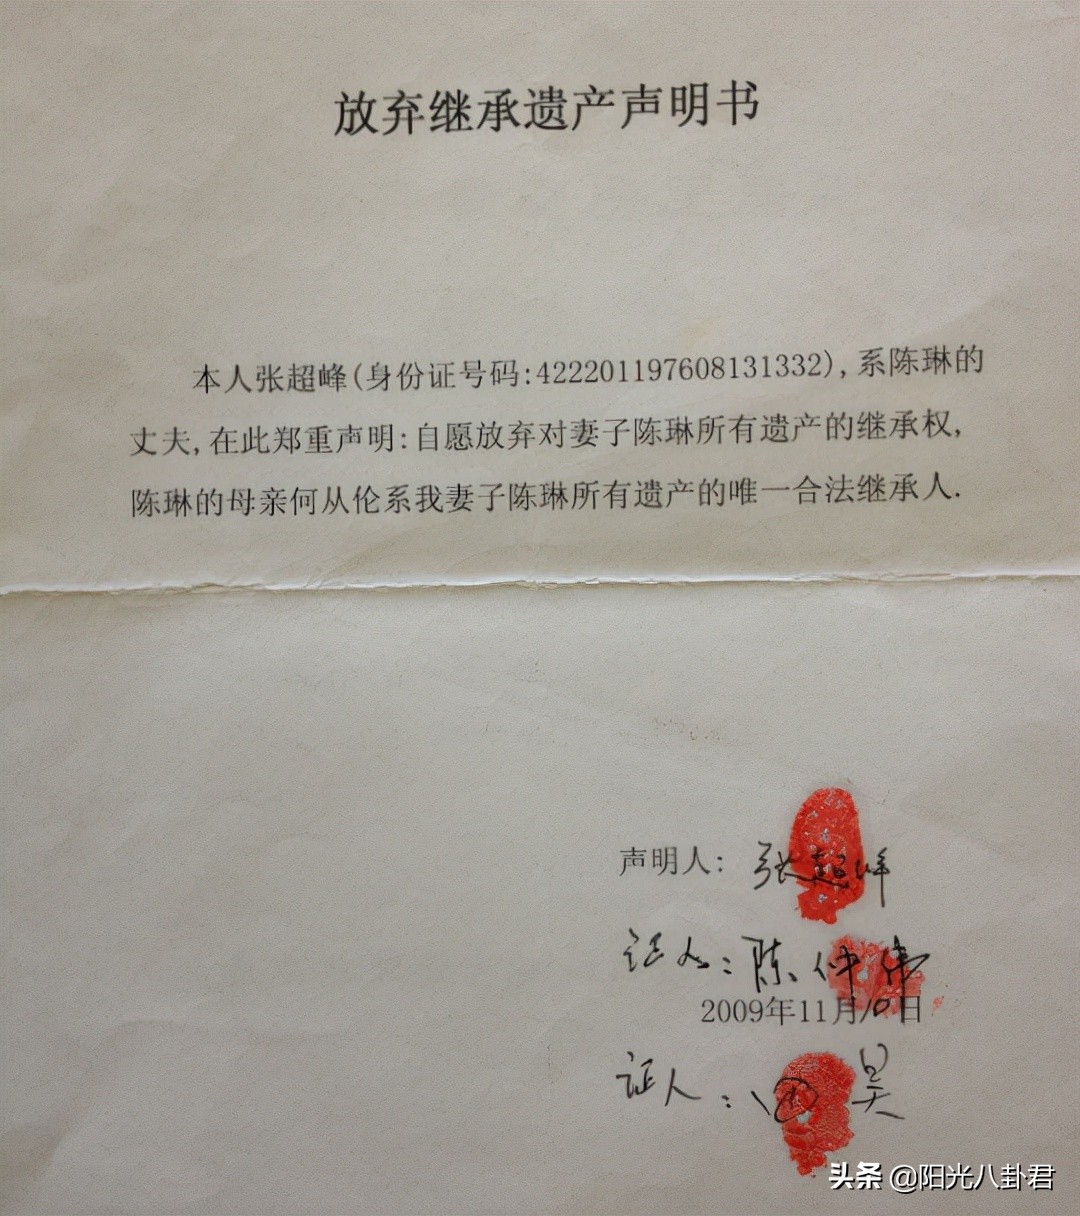 放弃继承遗产声明书
本人张超峰(身份证号码:422201197608131332),系陈琳的
丈夫,在此郑重声明:自愿放弃对妻子陈琳所有遗产的继承权,
陈琳的母亲何从伦系我妻子陈琳所有遗产的唯一合法继承人.
声明人: 张超峰
证人: 陈仲伟
2009年11月10日
证人: 昊
头条 @阳光八卦君